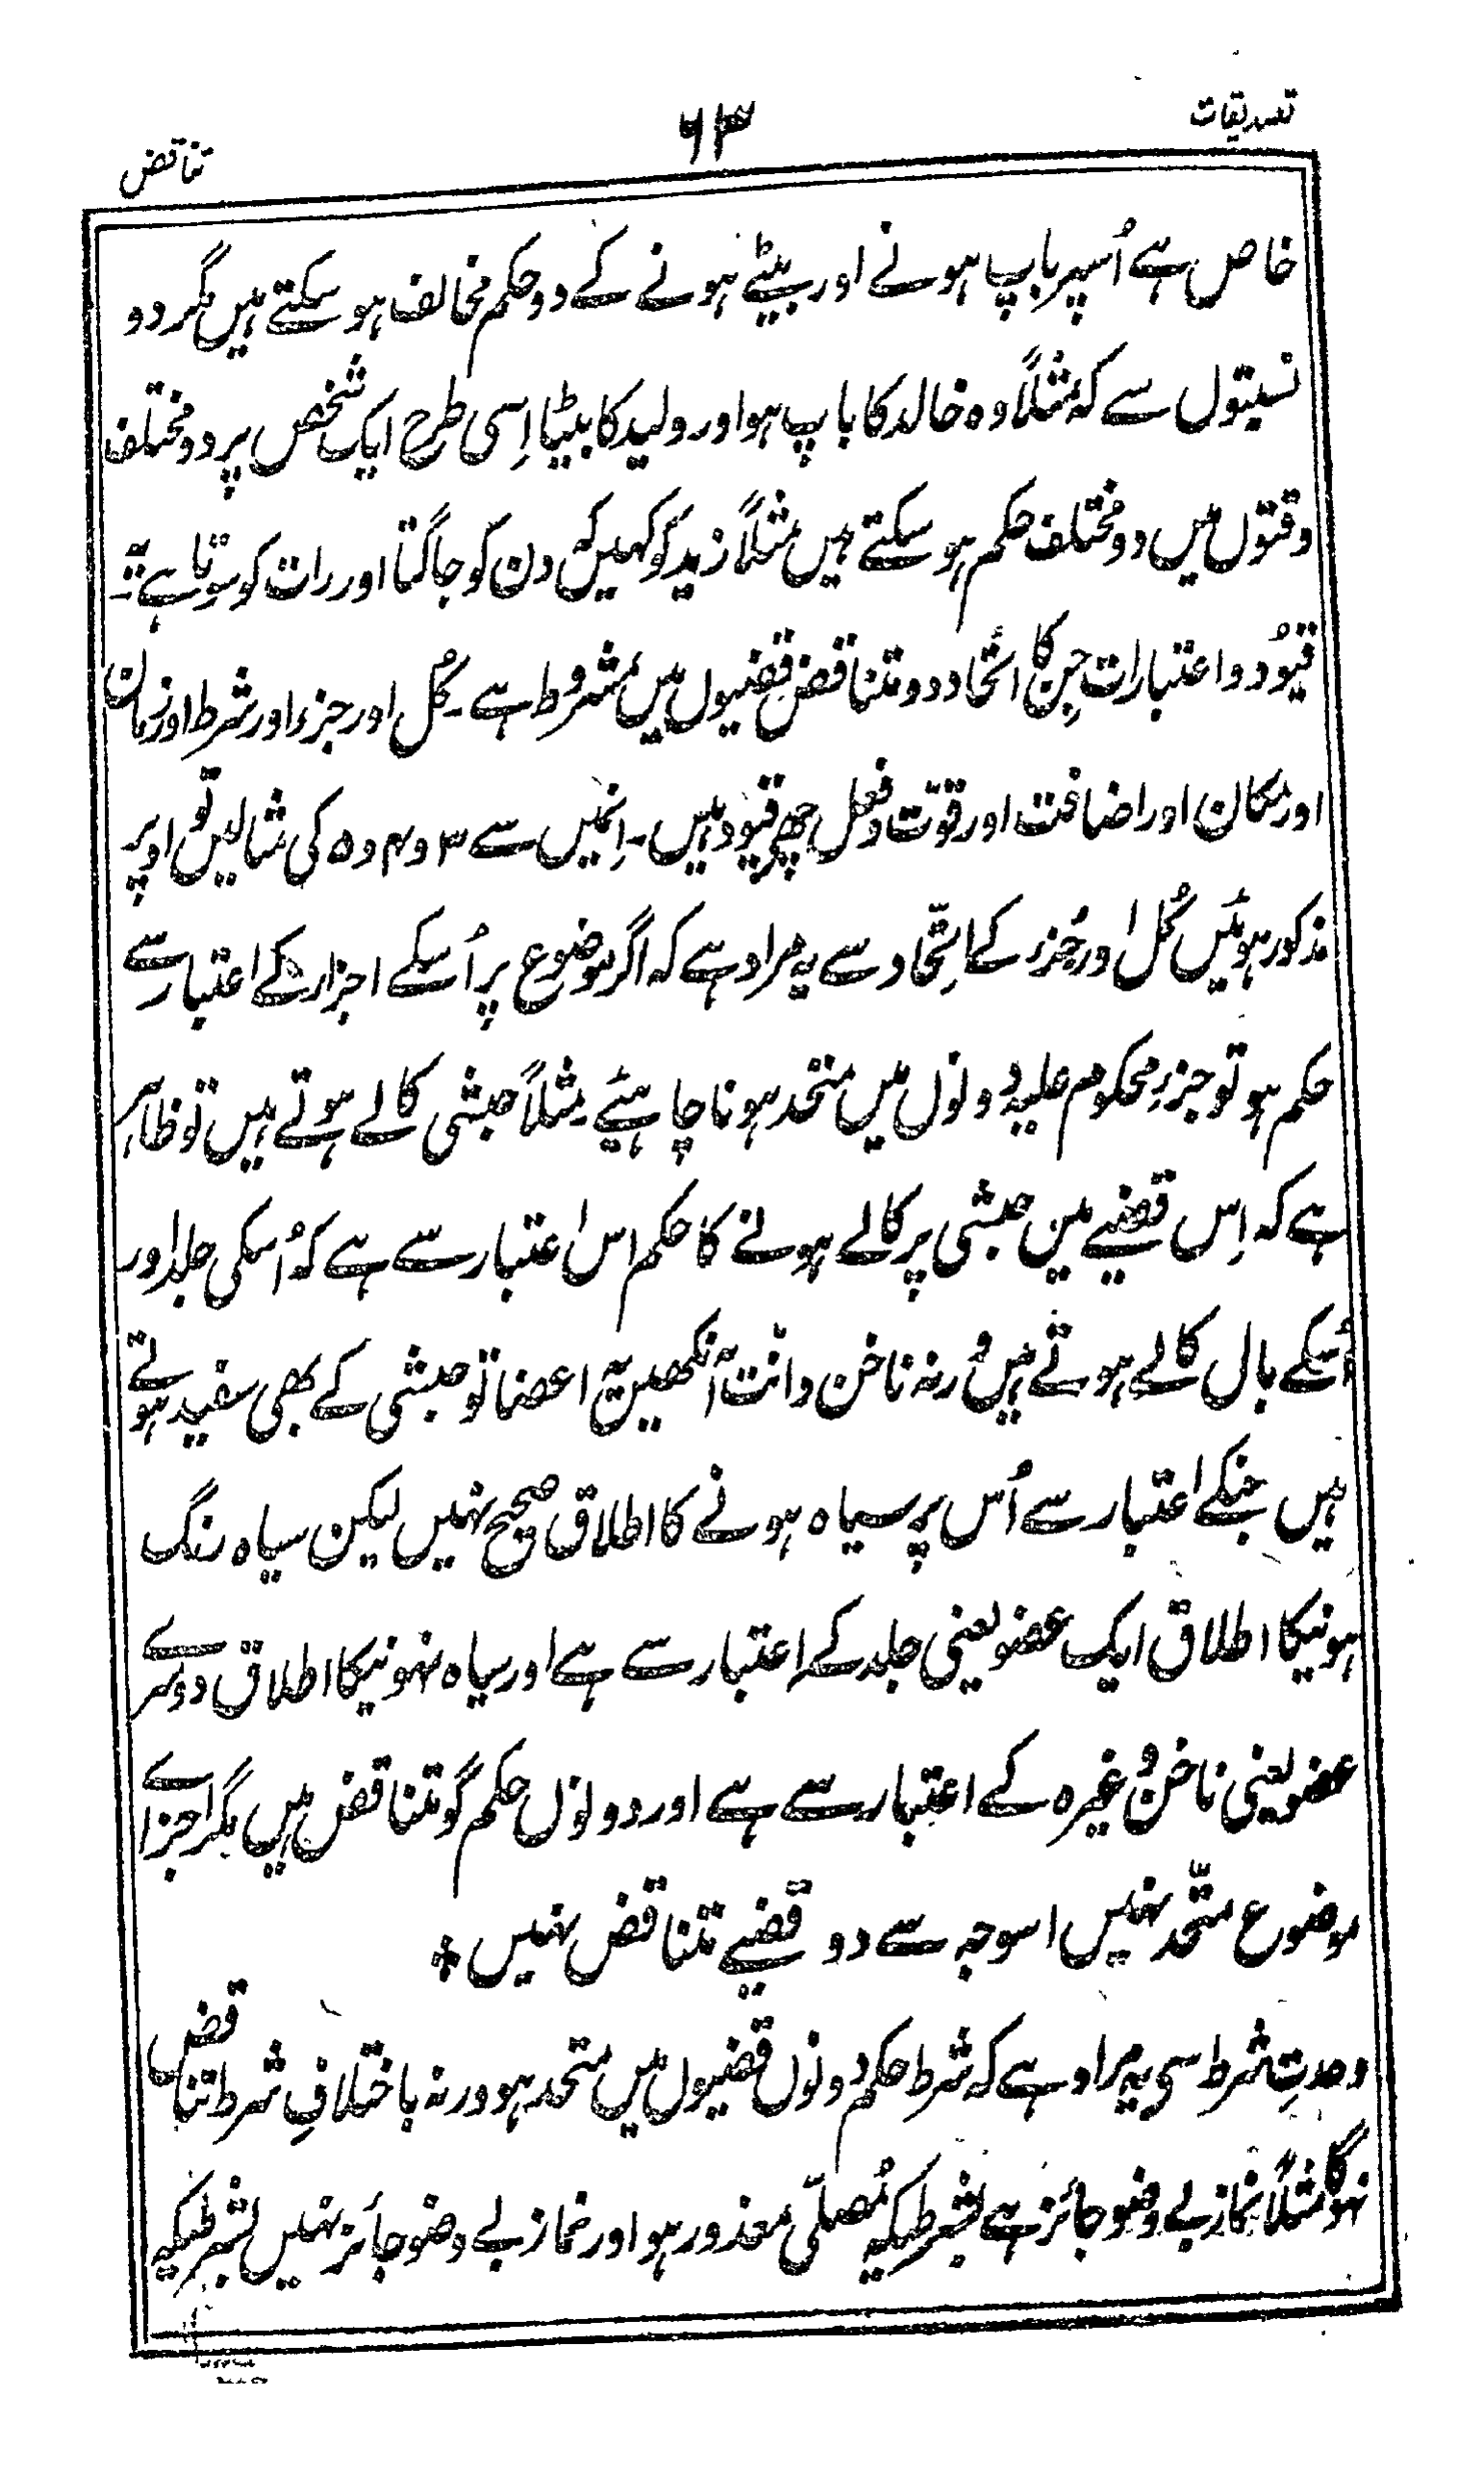 تصدیقات
۶۳
تناقض
خاص ہے اُسپر باپ ہونے اور بیٹے ہونے کے دو حکم مخالف ہو سکتے ہیں مگر دو
نسبتوں سے کہ مثلاً وہ خالد کا باپ ہو اور ولید کا بیٹا اِسی طرح ایک شخص پر دو مختلف
وقتوں میں دو مختلف حکم ہو سکتے ہیں مثلاً زید کو کہیں کہ دن کو جاگتا اور رات کو سوتا ہے یہ
قیُود و اعتبارات جن کا اتحاد دو متناقض قضیوں میں مشروط ہے۔ کُل اور جزء اور شرط اور زمان
اور مکان اور اضافت اور قوّت و فعل چھے قیود ہیں۔ اِنمیں سے ۳ و ۴ و ۵ کی مثالیں تو اوپر
مذکور ہوئیں کُل اور جُزء کے اتِّحاد سے یہ مراد ہے کہ اگر موضوع پر اُسکے اجزاء کے اعتبار سے
حکم ہو تو جزءِ محکوم علیہ دونوں میں متحد ہونا چاہئیے۔ مثلاً حبشی کالے ہوتے ہیں تو ظاہر
ہے کہ اِس قضیے مین حبشی پر کالے ہونے کا حکم اس اعتبار سے ہے کہ اُسکی جلد اور
اُسکے بال کالے ہوتے ہیں ورنہ ناخن دانت آنکھیں یہ اعضا تو حبشی کے بھی سفید ہوتے
ہیں جنکے اعتبار سے اُس پر سیاہ ہونے کا اطلاق صحیح نہیں لیکن سیاہ رنگ
ہونیکا اطلاق ایک عضو یعنی جلد کے اعتبار سے ہے اور سیاہ نہونیکا اطلاق دوسرے
عضو یعنی ناخن وغیرہ کے اعتبار سے ہے اور دونوں حکم گو متناقض ہیں مگر اجزائے
موضوع متّحد نہیں اسوجہ سے دو قضیے متناقض نہیں *
وحدتِ شرط سی یہ مراد ہے کہ شرط حکم دونوں قضیوں میں متحد ہو ورنہ باختلافِ شرط تناقض
نہوگا مثلاً نماز بے وضو جائز ہے بشرطیکہ مُصلّی معذور ہو اور نماز بے وضو جائز نہیں بشرطیکہ